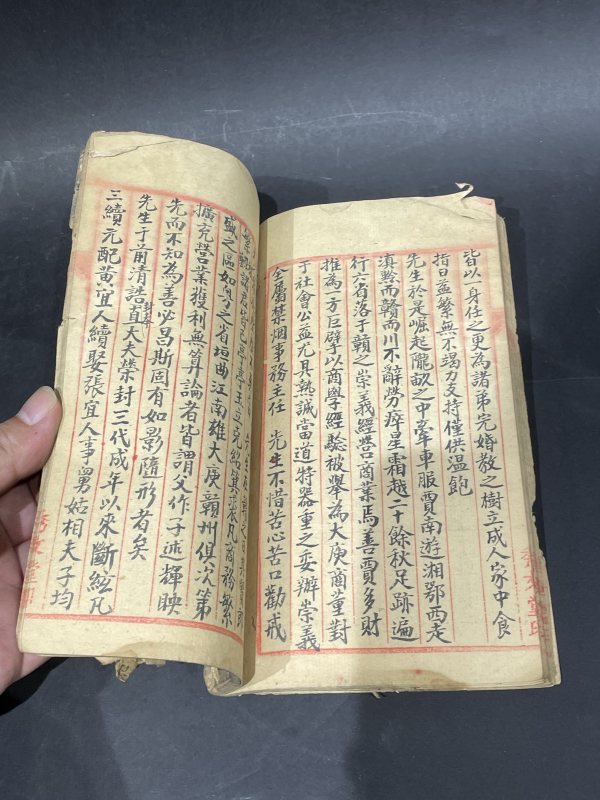 皆以身任之更為諸弟完婚教之樹立成人家中食
指日益繁無不竭力支持僅供溫飽
先生於是崛起隴畝之中牽車服賈南游湘鄂西走
滇黔而贛而川不辭勞瘁星霜越二十餘秋足跡遍
行六省落于贛之崇義經營商業焉善賈多財
推為一方巨擘以商學經驗被舉為大庚商董對
于社會公益尤具熱誠當道特器重之委辦崇義
全屬禁烟事務主任 先生不惜苦心苦口勸戒
盛之區如粵之省垣曲江南雄大庚贛州俱次第
擴充營業獲利無算論者皆謂父作子述輝映
先而不知為善必昌斯固有如影隨形者矣
先生于前清誥封奉直大夫榮封三代成年以來斷絃凡
三續元配黃宜人續娶張宜人事舅姑相夫子均